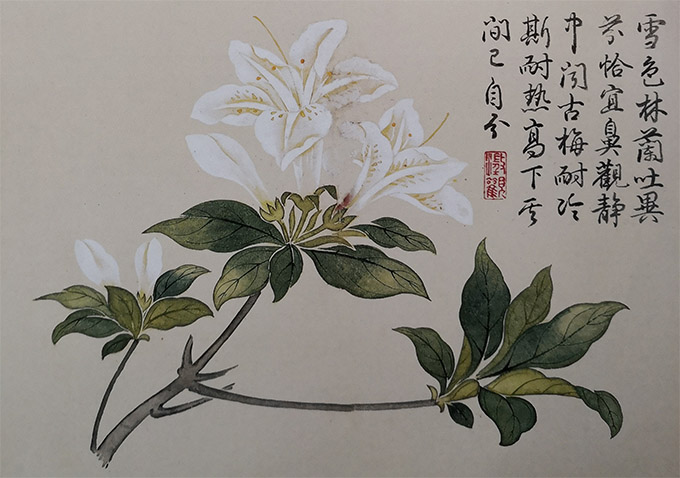 雪色林蘭吐異
芬恰宜鼻觀静
中聞古梅耐冷
斯耐熱高下其
間已自分